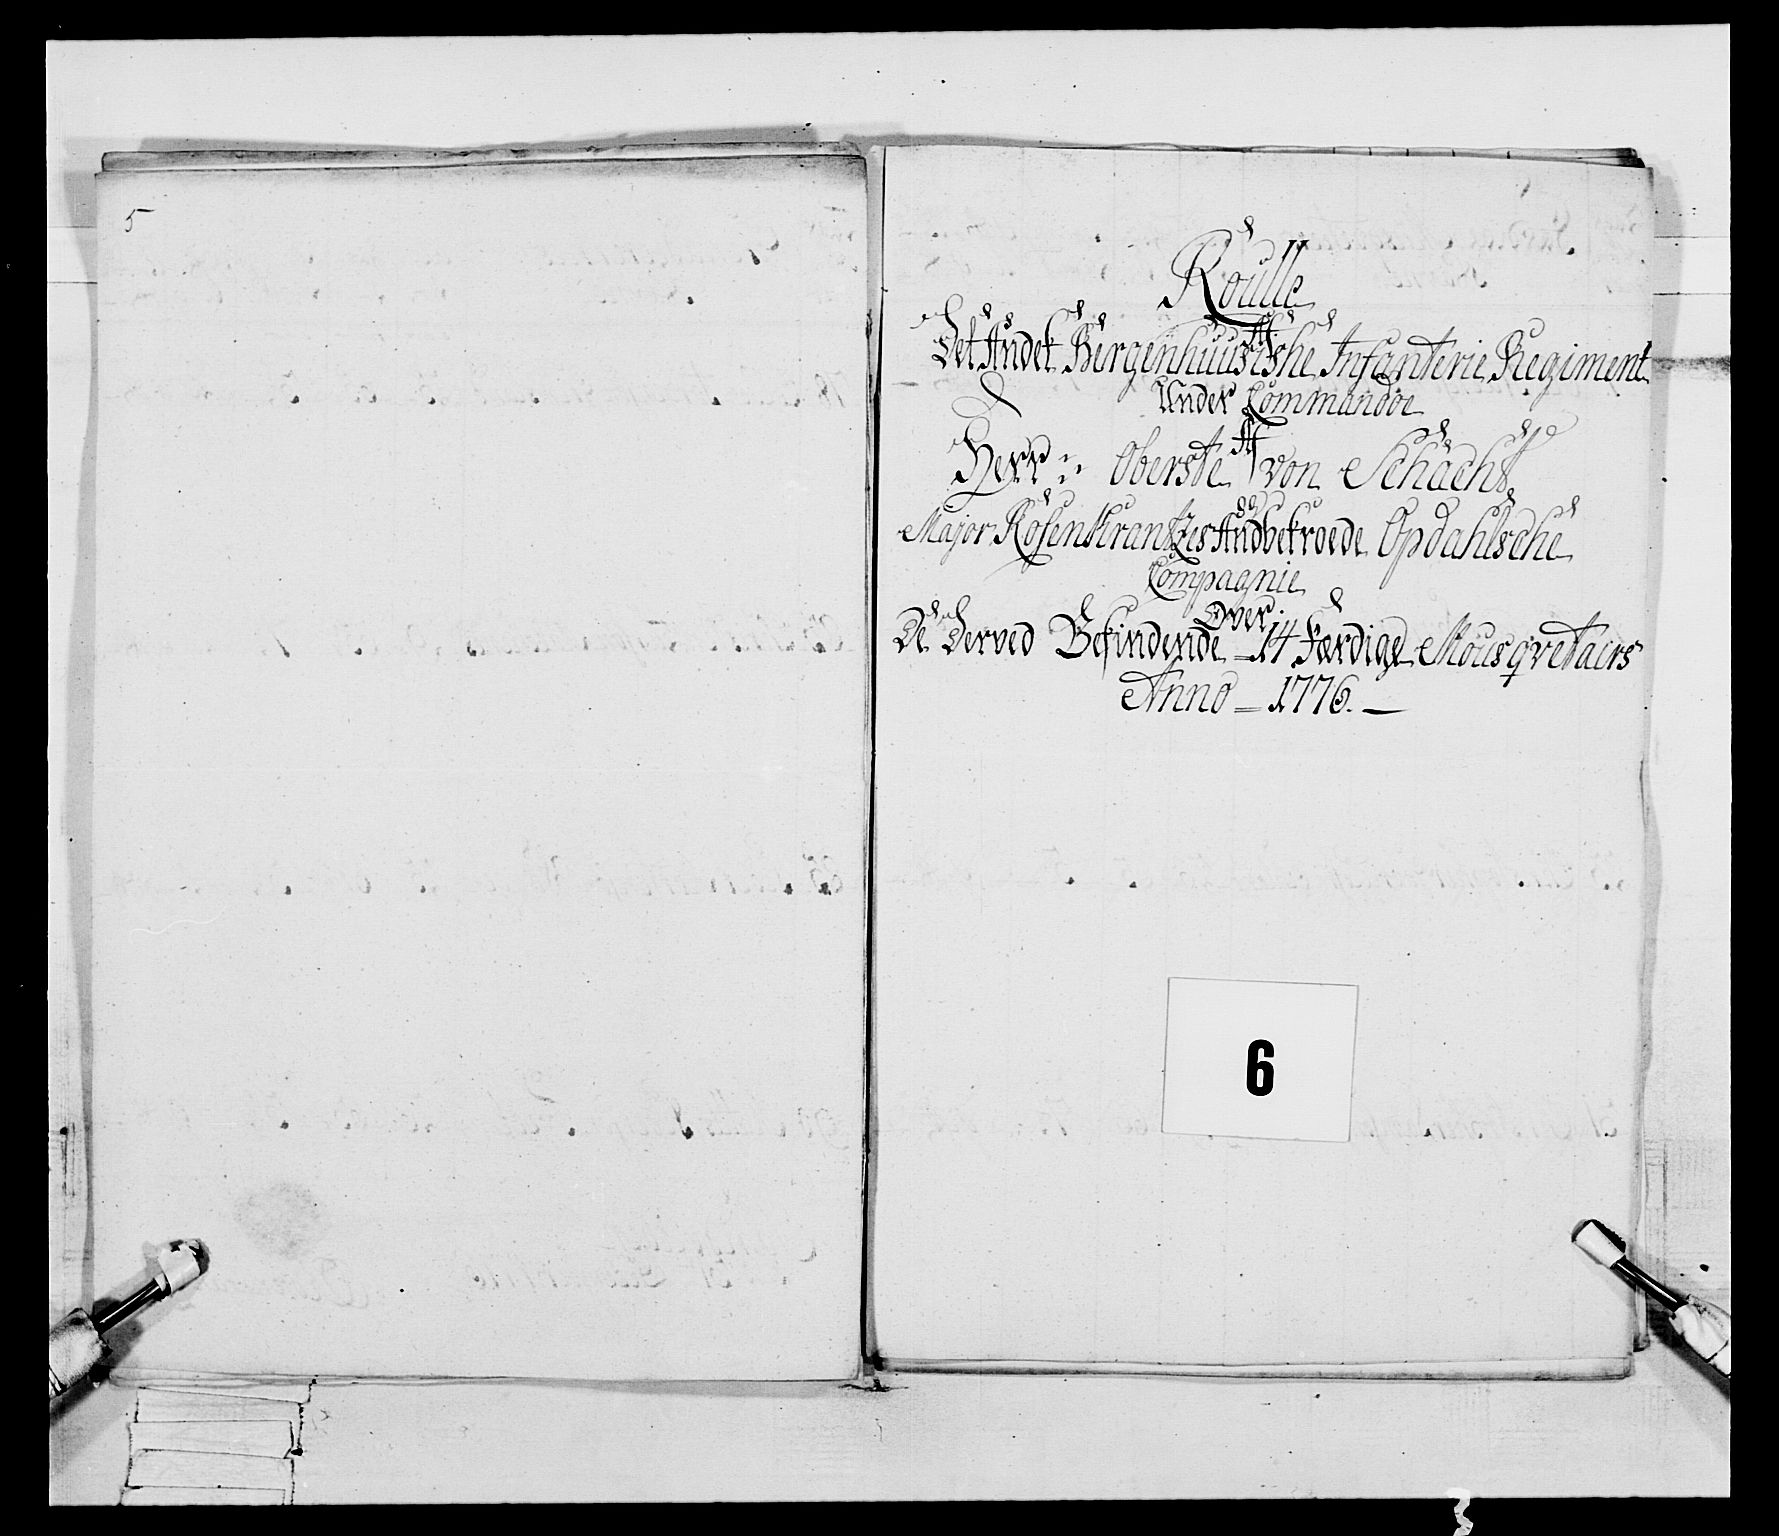 5
Roulle
Det Andet Bergenhuusische Infanterie Regiment
Under Commandoe
Herr Oberste von Schacht
Major Rosenkrantzes Opdahlsche
Compagnie
Over
De Derved Befindende 14 Færdige Mousqvetairs
Anno 1776.
6